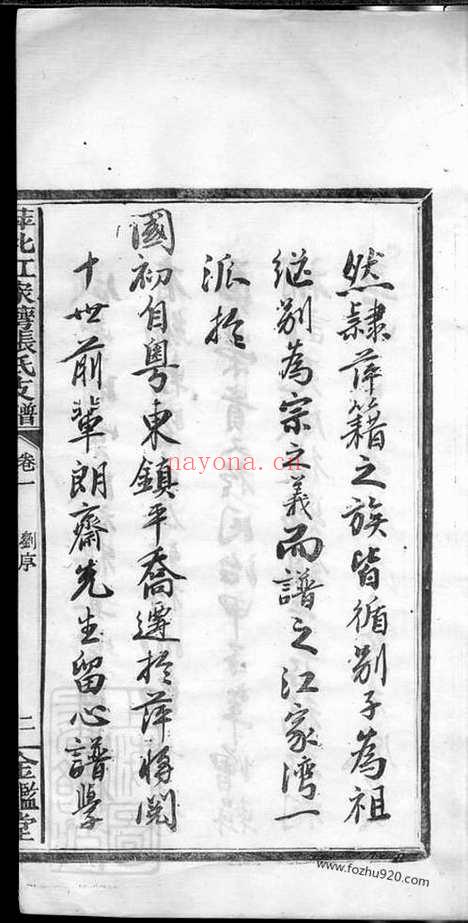 然隸萍籍之族皆循別子為祖
继別為宗之義而譜之江家湾一
派於
國初自粵東鎮平喬遷於萍將閱
十世前輩朗齋先生留心譜學
萍北江家灣張氏支譜
卷一
劉序
二
金鑑堂
nayona.cn
www.fozhu920.com